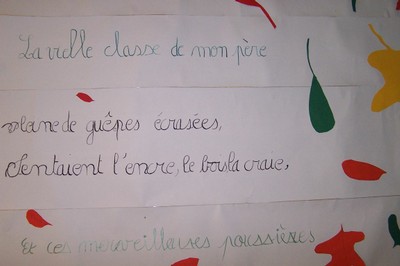 La vielle classe de mon père
plane de guêpes écrasées,
Sentaient l'encre, le bois, la craie,
Et ces merveilleuses poussières